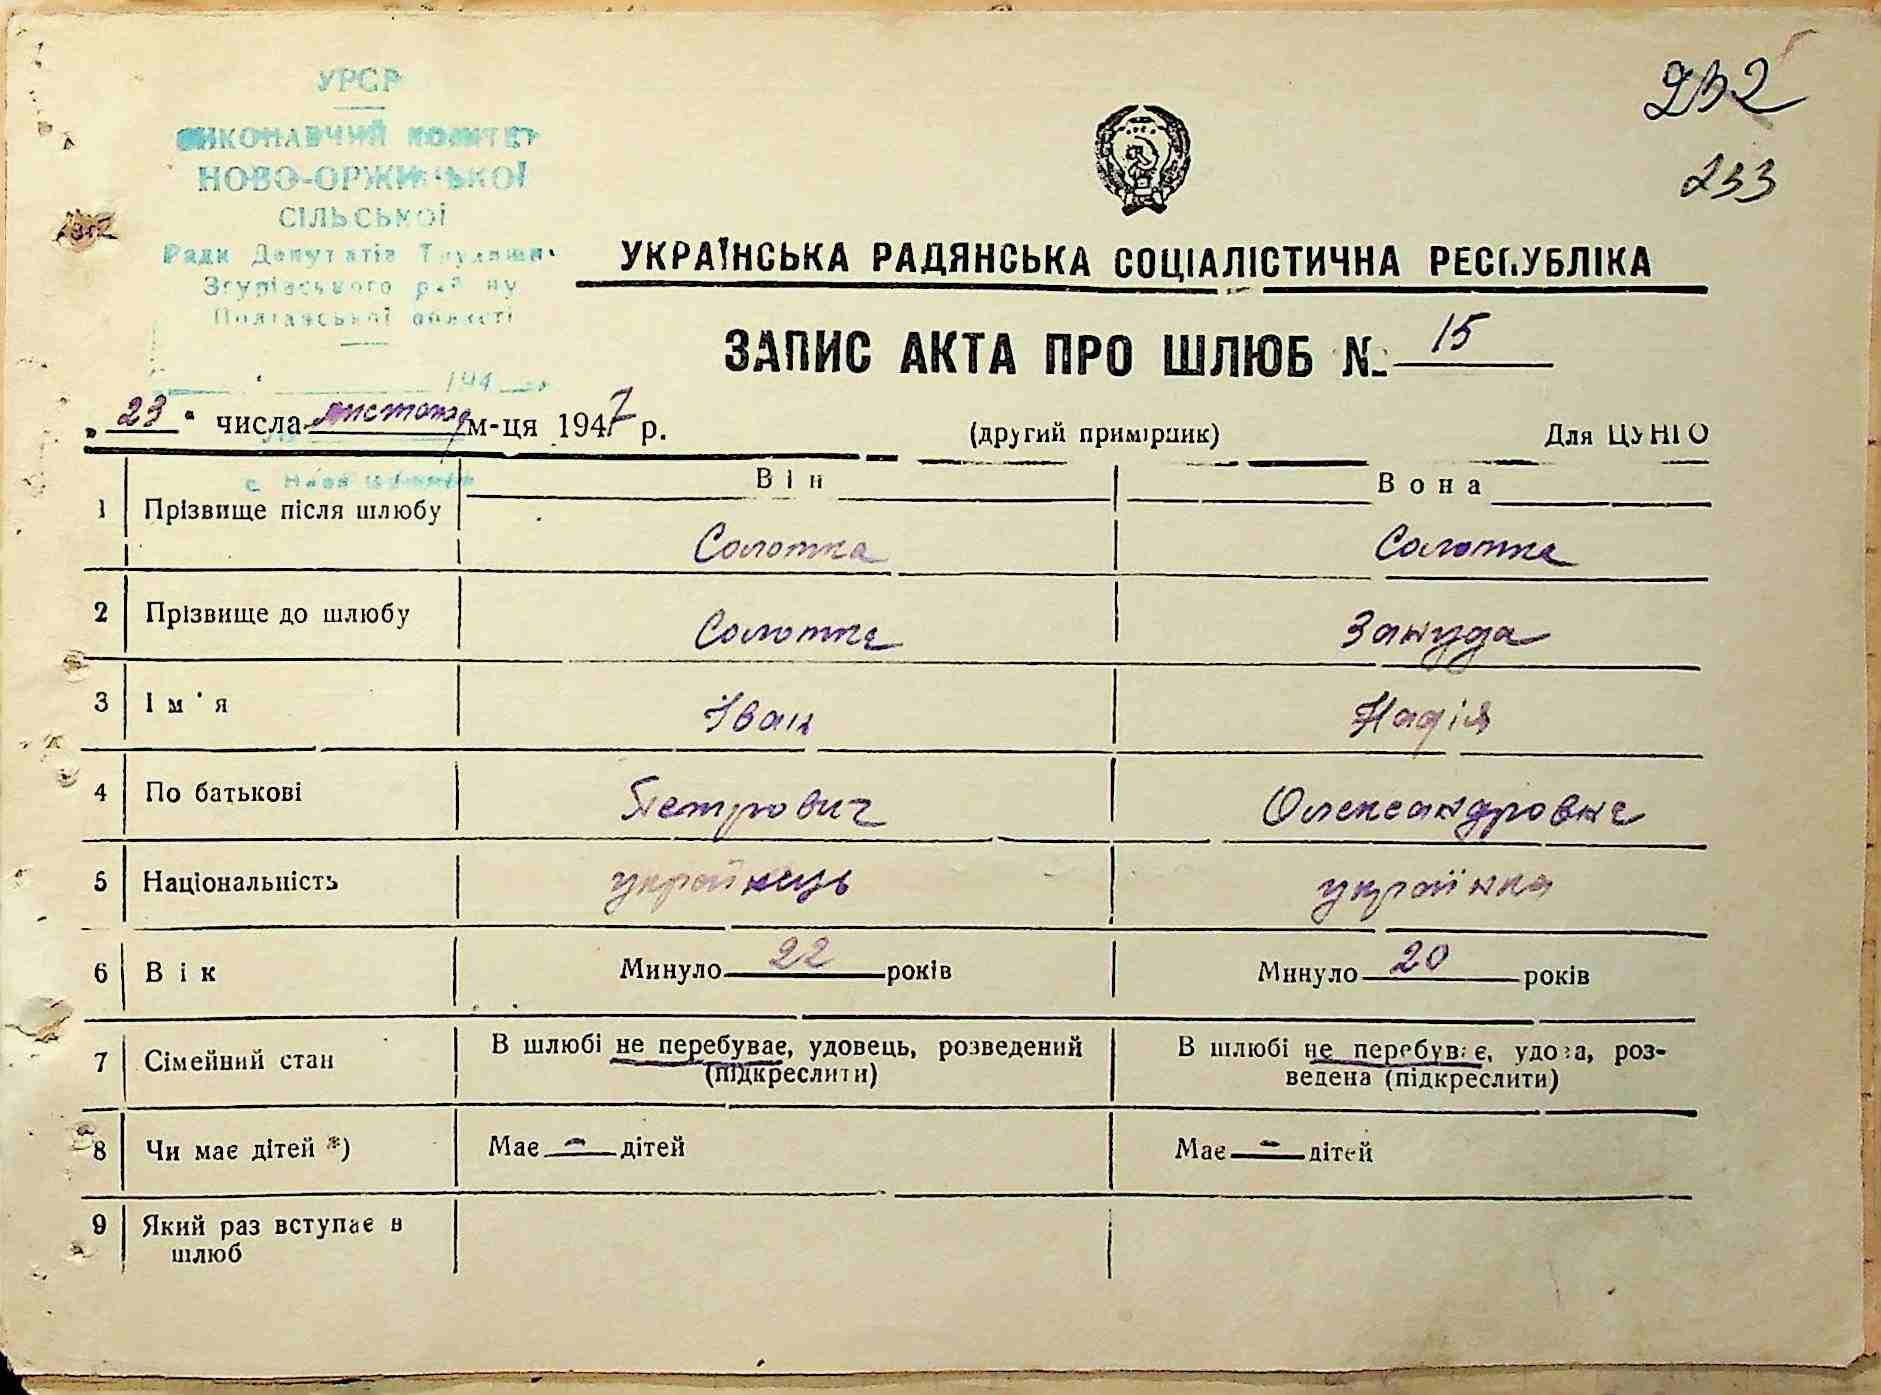 УРСР
ВИКОНАВЧИЙ КОМІТЕТ
НОВО-ОРЖИЦЬКОЇ
СІЛЬСЬКОЇ
Ради Депутатів Трудящих
Згурівського району
Полтавської області
194
232
233
УКРАЇНСЬКА РАДЯНСЬКА СОЦІАЛІСТИЧНА РЕСПУБЛІКА
ЗАПИС АКТА ПРО ШЛЮБ № 15
„23“ числа листопад м-ця 1947 р. (другий примірник) Для ЦУНГО
Він Вона
1 Прізвище після шлюбу Солотка Солотка
2 Прізвище до шлюбу Солотка Зануда
3 Ім'я Іван Надія
4 По батькові Петрович Олександровна
5 Національність українець українка
6 Вік Минуло 22 років Минуло 20 років
7 Сімейний стан В шлюбі не перебуває, удовець, розведений (підкреслити) В шлюбі не перебуває, удова, роз-
ведена (підкреслити)
8 Чи має дітей *) Має - дітей Має - дітей
9 Який раз вступає в
шлюб